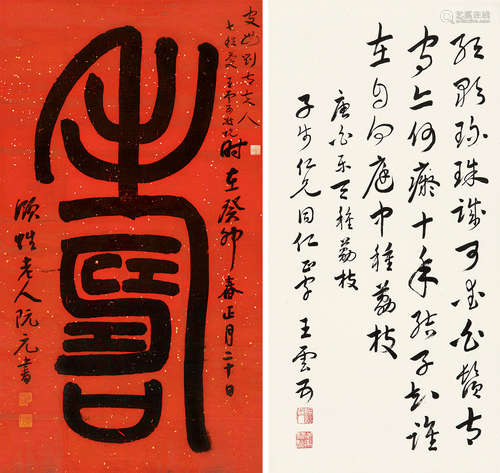 壽
时在癸卯春正月二十日
頤性老人阮元書
紅顆珍珠誠可愛白鬚太
守亦何癡十年結子知誰
在自向庭中種荔枝
唐白樂天種荔枝
仁兄同仁正字 王雲五